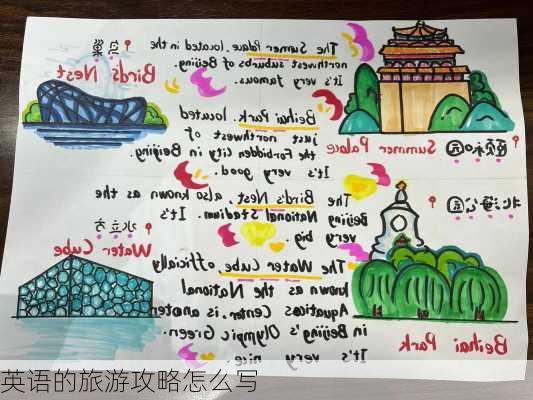 鸟巢
Bird's Nest
The Sumer Palace, located in the
northwest suburbs of Beijing.
It's very famous.
颐和园
Summer Palace
Beihai Park, located
just northwest of
the Forbidden City in Beijing.
It's very good.
The Bird's Nest, also known as the
Beijing National Stadium. It's
very big.
北海公园
Beihai Park
水立方
Water Cube
The Water Cube, officially
known as the National
Aquatics Center, is
in Beijing's Olympic Green.
It's very nice.
英语的旅游攻略怎么写